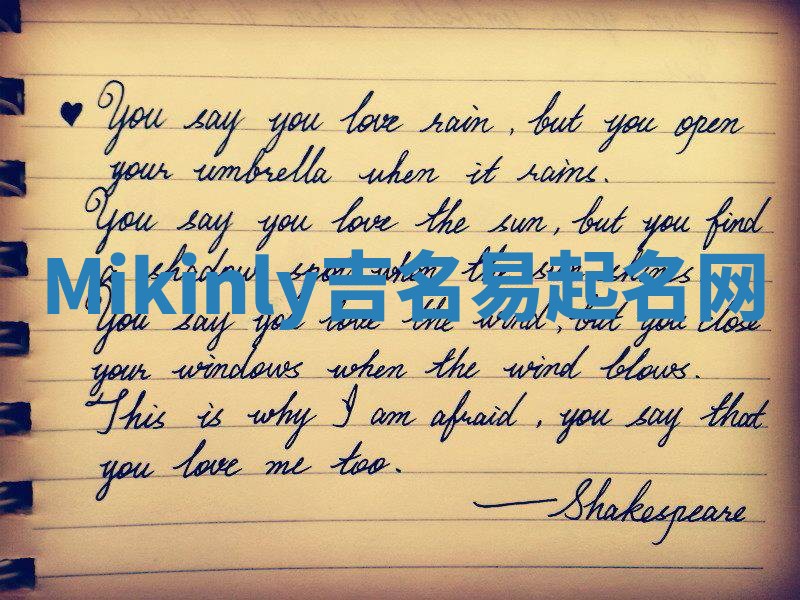 You say you love rain, but you open
your umbrella when it rains.
You say you love the sun, but you find
a shadow spot when the sun shines
Mikinly吉名易起名网
You say you love the wind, but you close
your windows when the wind blows.
This is why I am afraid, you say that
you love me too.
— Shakespeare